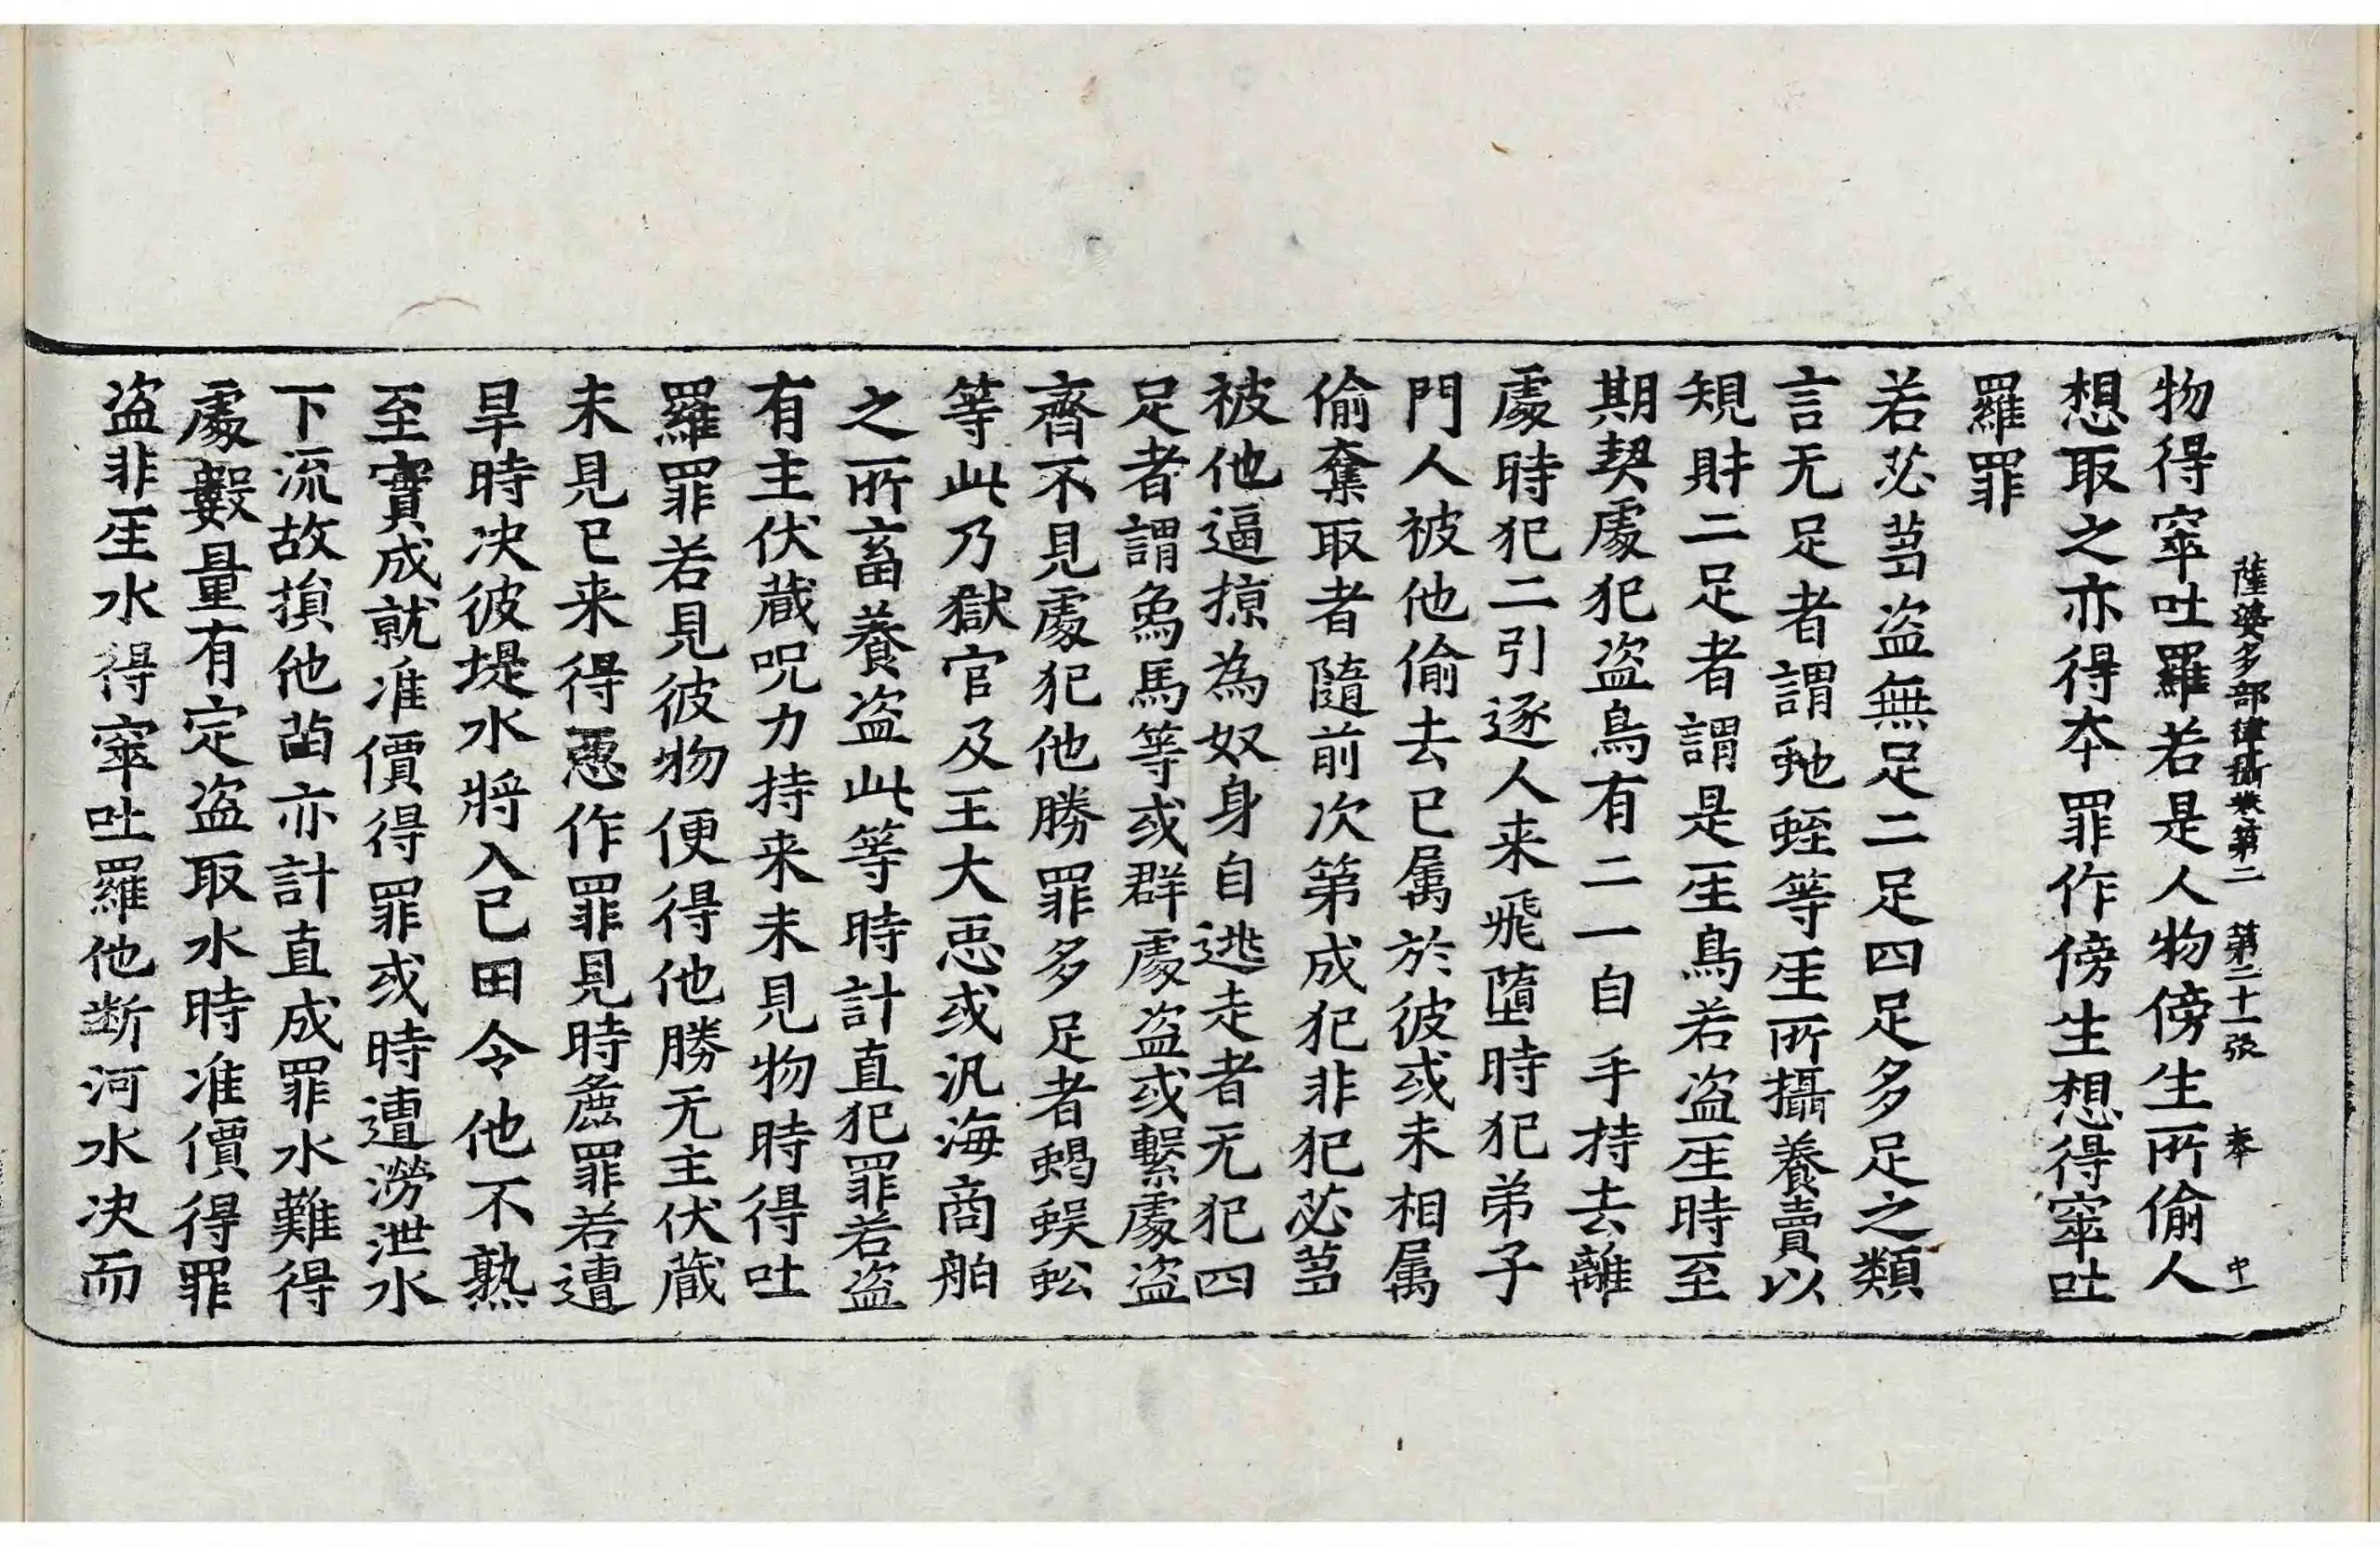 薩婆多部律攝卷第二 第二十一張 奉
物得窣吐羅若是人物傍生所偷人
想取之亦得本罪作傍生想得窣吐
羅罪
若苾芻盜無足二足四足多足之類
言无足者謂虵蛭等𤯔所攝養賣以
規財二足者謂是𤯔鳥若盜𤯔時至
期契處犯盜鳥有二一自手持去離
處時犯二引逐人来飛墮時犯弟子
門人被他偷去已属於彼或未相属
偷奪取者隨前次第成犯非犯苾芻
被他逼掠為奴身自逃走者无犯四
足者謂象馬等或群處盜或繫處盜
齊不見處犯他勝罪多足者蝎蜈蚣
等此乃獄官及王大臣或汎海商舶
之所畜養盜此等時計直犯罪若盜
有主伏蔵呪力持来未見物時得吐
羅罪若見彼物便得他勝无主伏蔵
未見已来得惡作罪見時麁罪若遭
旱時决彼堤水將入己田令他不熟
至實成就准價得罪或時遭澇泄水
下流故損他苗亦計直成罪水難得
處數量有定盜取水時准價得罪
盜非𤯔水得窣吐羅他断河水决而